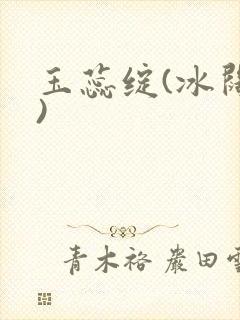 玉蕊绽(冰
)
青木裕 巖田